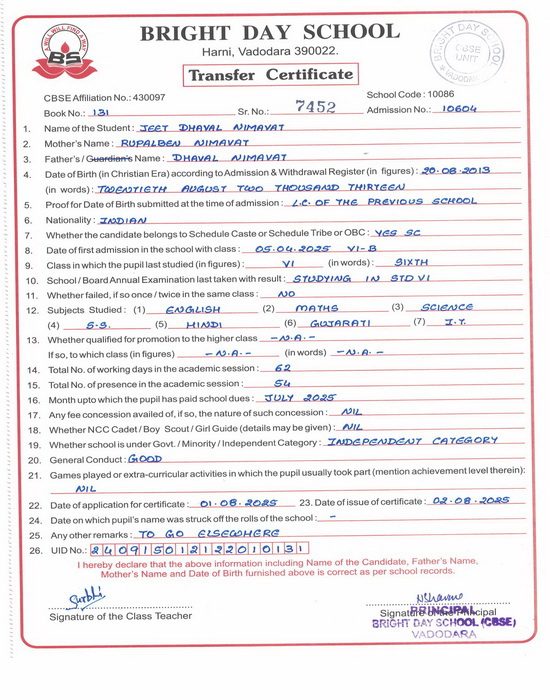 A WILL WILL FIND A WAY
BS
BRIGHT DAY SCHOOL
Harni, Vadodara 390022.
BRIGHT DAY SCHOOL
CBSE UNIT
VADODARA
Transfer Certificate
CBSE Affiliation No.: 430097 School Code : 10086
Book No.: 131 Sr. No.: 7452 Admission No.: 10604
1. Name of the Student : JEET DHAVAL NIMAVAT
2. Mother's Name : RUPALBEN NIMAVAT
3. Father's / Guardian's Name : DHAVAL NIMAVAT
4. Date of Birth (in Christian Era) according to Admission & Withdrawal Register (in figures) : 20.08.2013
(in words) : TWENTIETH AUGUST TWO THOUSAND THIRTEEN
5. Proof for Date of Birth submitted at the time of admission : L.C. OF THE PREVIOUS SCHOOL
6. Nationality : INDIAN
7. Whether the candidate belongs to Schedule Caste or Schedule Tribe or OBC : YES SC
8. Date of first admission in the school with class : 05.04.2025 VI-B
9. Class in which the pupil last studied (in figures) : VI (in words) : SIXTH
10. School / Board Annual Examination last taken with result : STUDYING IN STD VI
11. Whether failed, if so once / twice in the same class : NO
12. Subjects Studied : (1) ENGLISH (2) MATHS (3) SCIENCE
(4) S.S. (5) HINDI (6) GUJARATI (7) I.T.
13. Whether qualified for promotion to the higher class -N.A.-
If so, to which class (in figures) -N.A.- (in words) -N.A.-
14. Total No. of working days in the academic session : 62
15. Total No. of presence in the academic session : 54
16. Month upto which the pupil has paid school dues : JULY 2025
17. Any fee concession availed of, if so, the nature of such concession : NIL
18. Whether NCC Cadet / Boy Scout / Girl Guide (details may be given) : NIL
19. Whether school is under Govt. / Minority / Independent Category : INDEPENDENT CATEGORY
20. General Conduct : GOOD
21. Games played or extra-curricular activities in which the pupil usually took part (mention achievement level therein):
NIL
22. Date of application for certificate : 01.08.2025 23. Date of issue of certificate : 02.08.2025
24. Date on which pupil's name was struck off the rolls of the school : -
25. Any other remarks : TO GO ELSEWHERE
26. UID No.: 240915012122010131
I hereby declare that the above information including Name of the Candidate, Father's Name,
Mother's Name and Date of Birth furnished above is correct as per school records.
Surbhi
Signature of the Class Teacher Signature of the Principal
PRINCIPAL
BRIGHT DAY SCHOOL (CBSE)
VADODARA